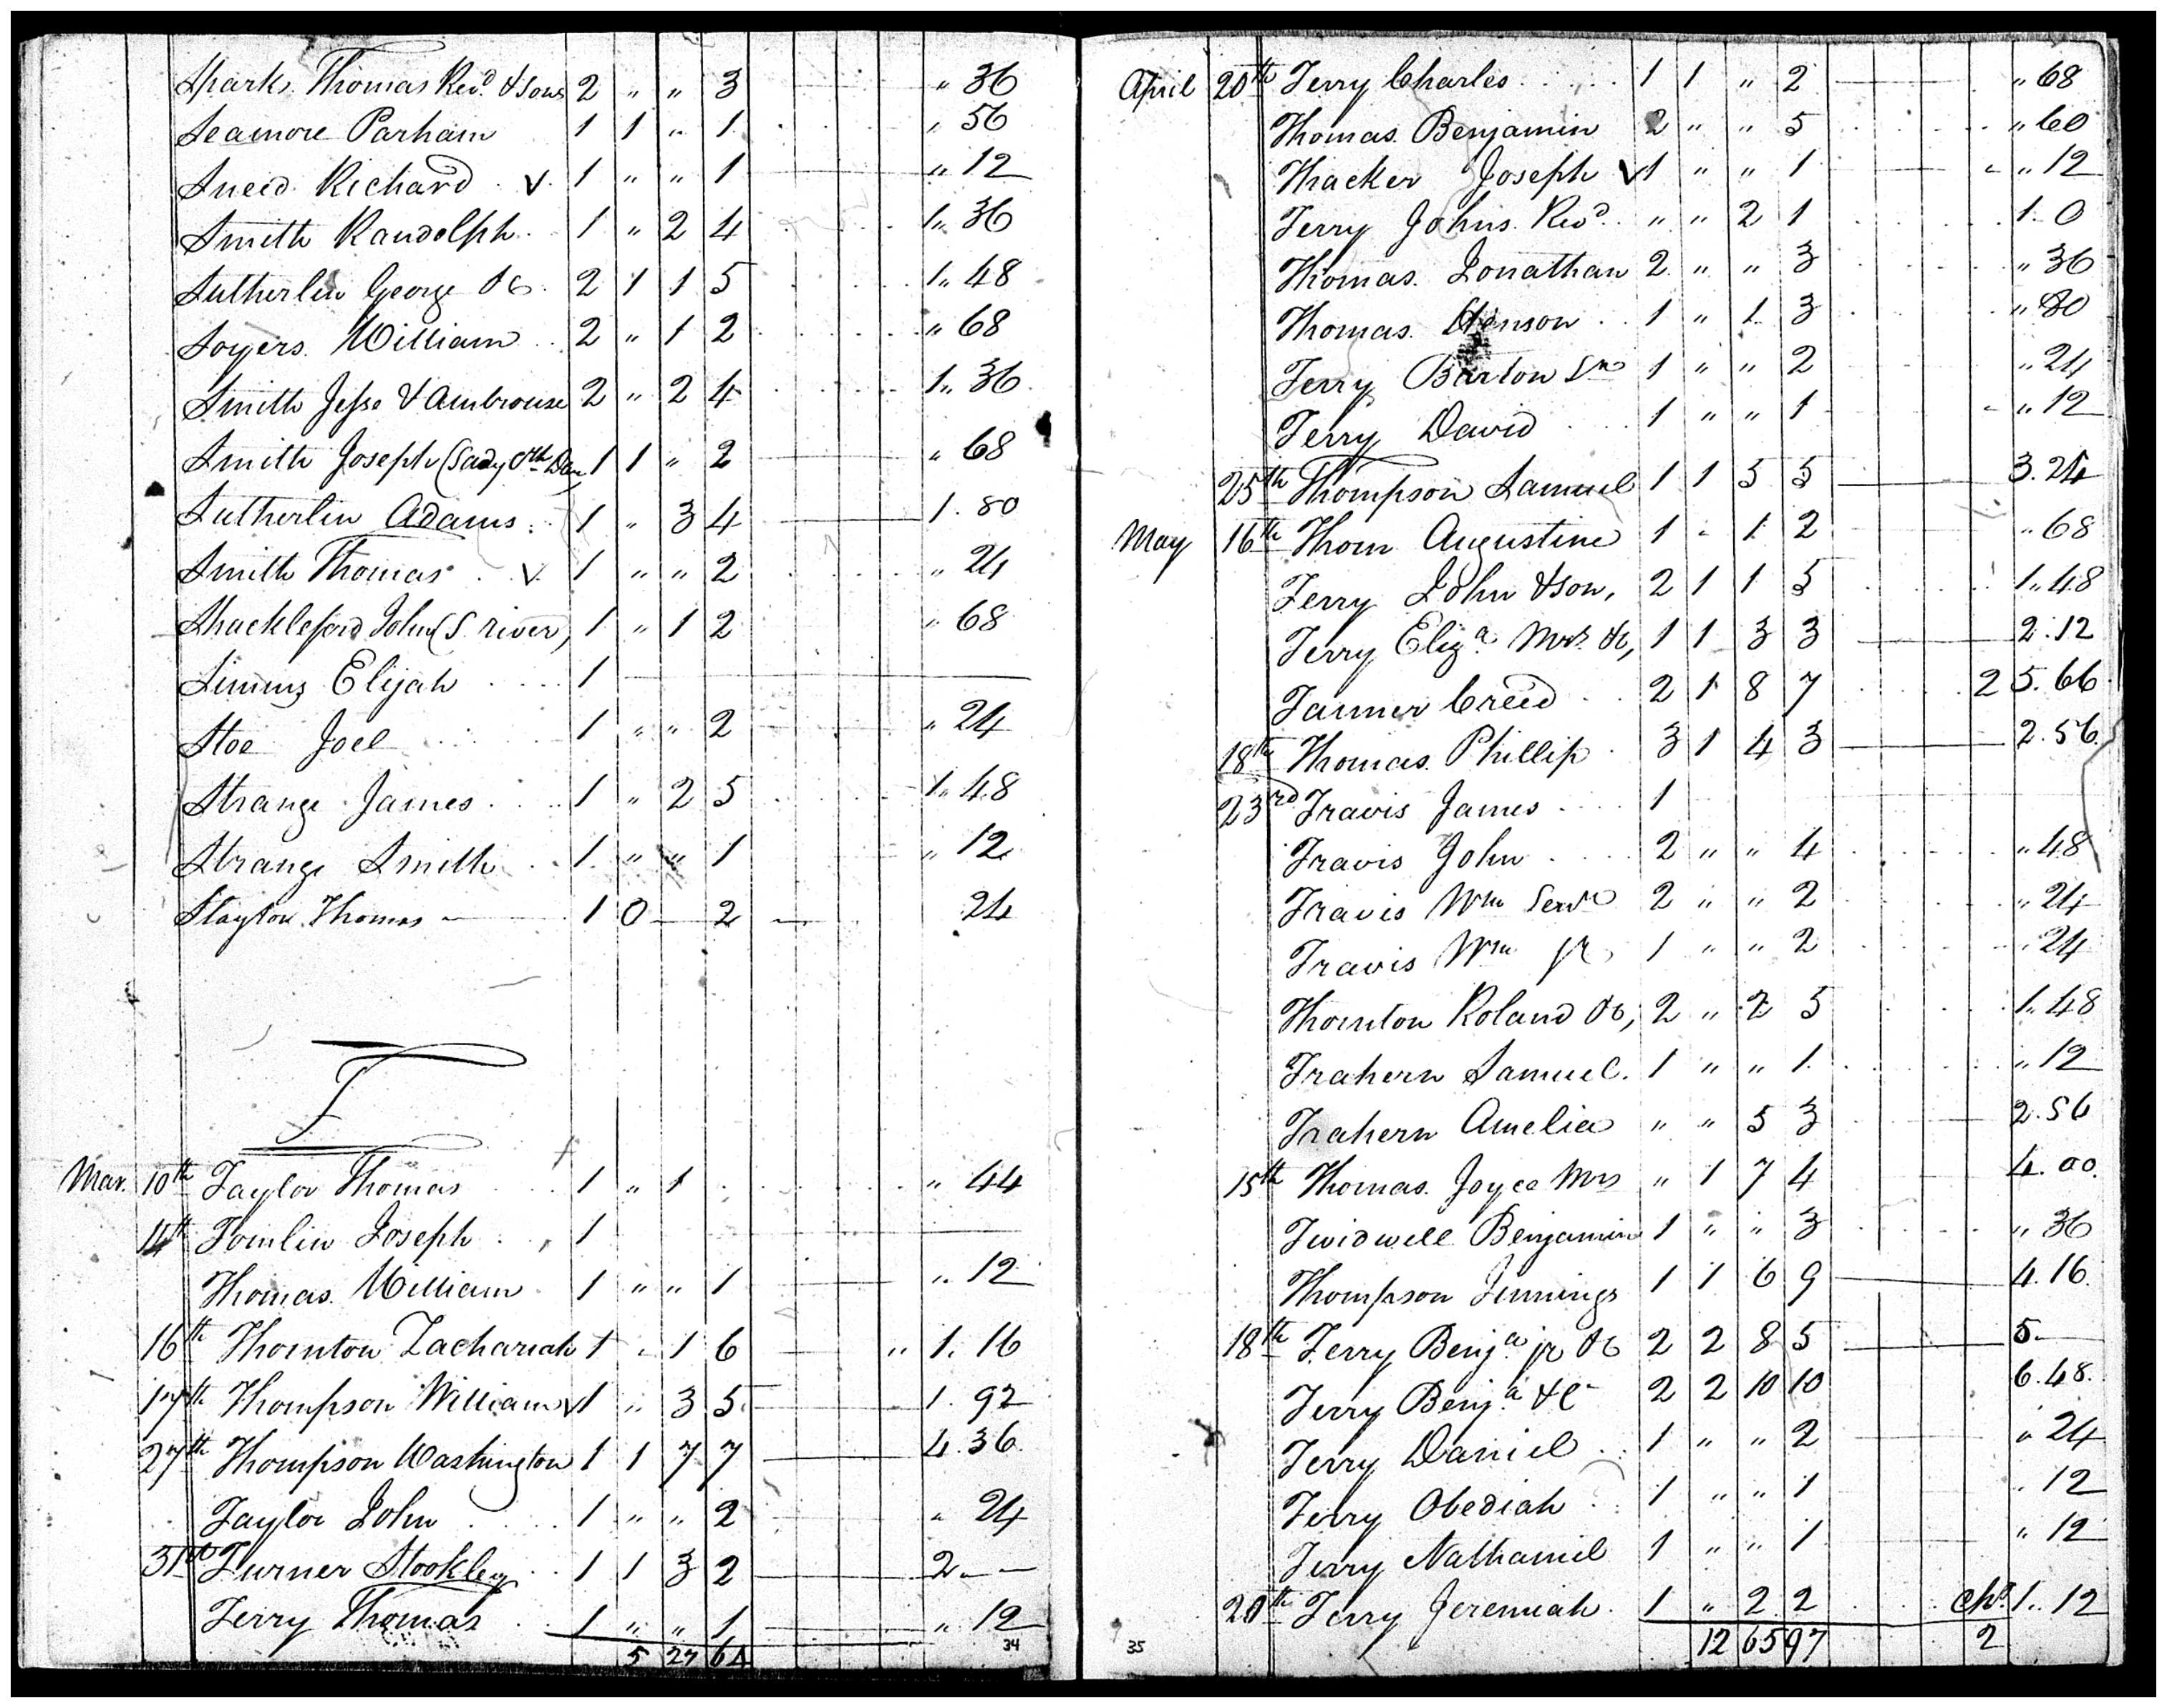 Spark. Thomas Revd. & sons 2 " " 3 " 36
Seamore Parham 1 1 " 1 " 56
Sneed Richard . v. 1 " " 1 " 12
Smith Randolph. 1 " 2 4 1. 36
Sutherlin George &c. 2 1 1 5 1. 48
Soyers William 2 " 1 2 " 68
Smith Jesse & Ambrouse 2 " 2 4 1. 36
Smith Joseph (Sady 1 1 " 2 " 68
Sutherlin Adams. 1 " 3 4 1. 80
Smith Thomas . v. 1 " " 2 " 24
Shackleford John (S. river) 1 " 1 2 " 68
Simms Elijah 1
Stoe Joel 1 " " 2 " 24
Strange James 1 " 2 5 1. 48
Strange Smith 1 " " 1 " 12
Slayton Thomas 1 0 2 24
T
Mar. 10th Taylor Thomas 1 " 1 " 44
14th Tomlin Joseph 1
Thomas William 1 " " 1 " 12
16th Thornton Zachariah 1 " 1 6 " 1. 16
17th Thompson William v 1 " 3 5 1. 92
27th Thompson Washington 1 1 7 7 4. 36
Taylor John 1 " " 2 " 24
31st Turner Stookley 1 1 3 2 2 — —
Terry Thomas 1 " " 1 " 12
5 27 64
34
April 20th Terry Charles 1 1 " 2 " 68
Thomas Benjamin 2 " " 5 " 60
Thacker Joseph v 1 " " 1 " 12
Terry Johns. Revd. " " 2 1 1. 0
Thomas. Jonathan 2 " " 3 " 36
Thomas. Henson 1 " 1 3 " 80
Terry Barton Sr 1 " " 2 " 24
Terry David 1 " " 1 " 12
25th Thompson Samuel 1 1 5 5 3. 24
May 16th Thom Augustine 1 - 1 2 " 68
Terry John & son, 2 1 1 5 1. 48
Terry Eliza Mrs. &c, 1 1 3 3 2. 12
Tanner Creed 2 1 8 7 2 5. 66
18th Thomas. Phillip 3 1 4 3 2. 56
23rd Travis James 1
Travis John 2 " " 4 " 48
Travis Wm Senr 2 " " 2 " 24
Travis Wm jr, 1 " " 2 " 24
Thornton Roland &c, 2 " 2 5 1. 48
Trahern Samuel. 1 " " 1 " 12
Trahern Amelia " " 5 3 2. 56
15th Thomas. Joyce Mrs " 1 7 4 4. 00
Twidwell Benjamin 1 " " 3 " 36
Thompson Jennings 1 1 6 9 4. 16.
18th Terry Benja. jr &c 2 2 8 5 5. —
Terry Benja. &c 2 2 10 10 6. 48.
Terry Daniel 1 " " 2 " 24
Terry Obediah 1 " " 1 " 12
Terry Nathaniel 1 " " 1 " 12
20th Terry Jeremiah 1 " 2 2 1. 12
12 65 97 2
35